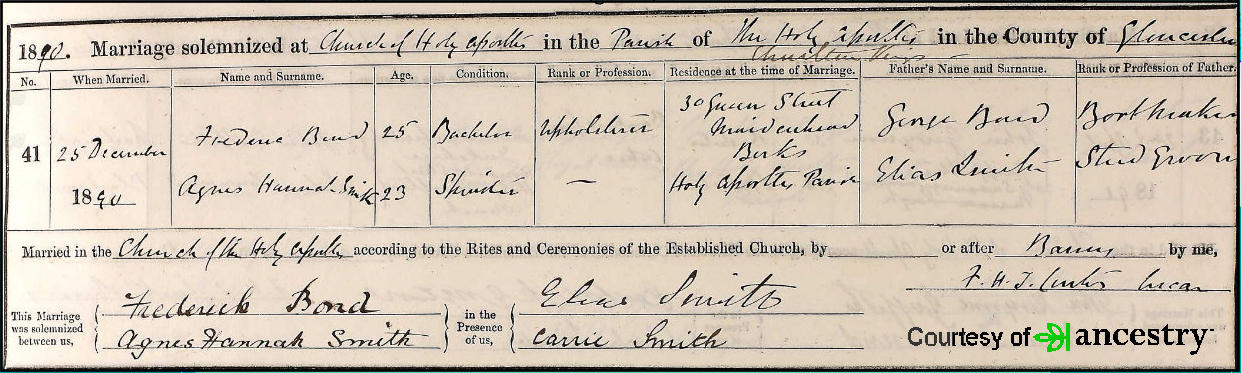 1890. Marriage solemnized at Church of Holy Apostles in the Parish of The Holy Apostles in the County of Gloucester
Charlton Kings
No. When Married. Name and Surname. Age. Condition. Rank or Profession. Residence at the time of Marriage. Father's Name and Surname. Rank or Profession of Father.
41 25 December 1890
Frederic Bond 25 Bachelor Upholsterer 30 Queen Street Maidenhead Berks George Bond Bootmaker
Agnes Hannah Smith 23 Spinster — Holy Apostles Parish Elias Smith Stud Groom
Married in the Church of the Holy Apostles according to the Rites and Ceremonies of the Established Church, by or after Banns by me,
F. H. J. Curate
This Marriage was solemnized between us, { Frederick Bond
Agnes Hannah Smith } in the Presence of us, { Elias Smith
Carrie Smith
Courtesy of ancestry